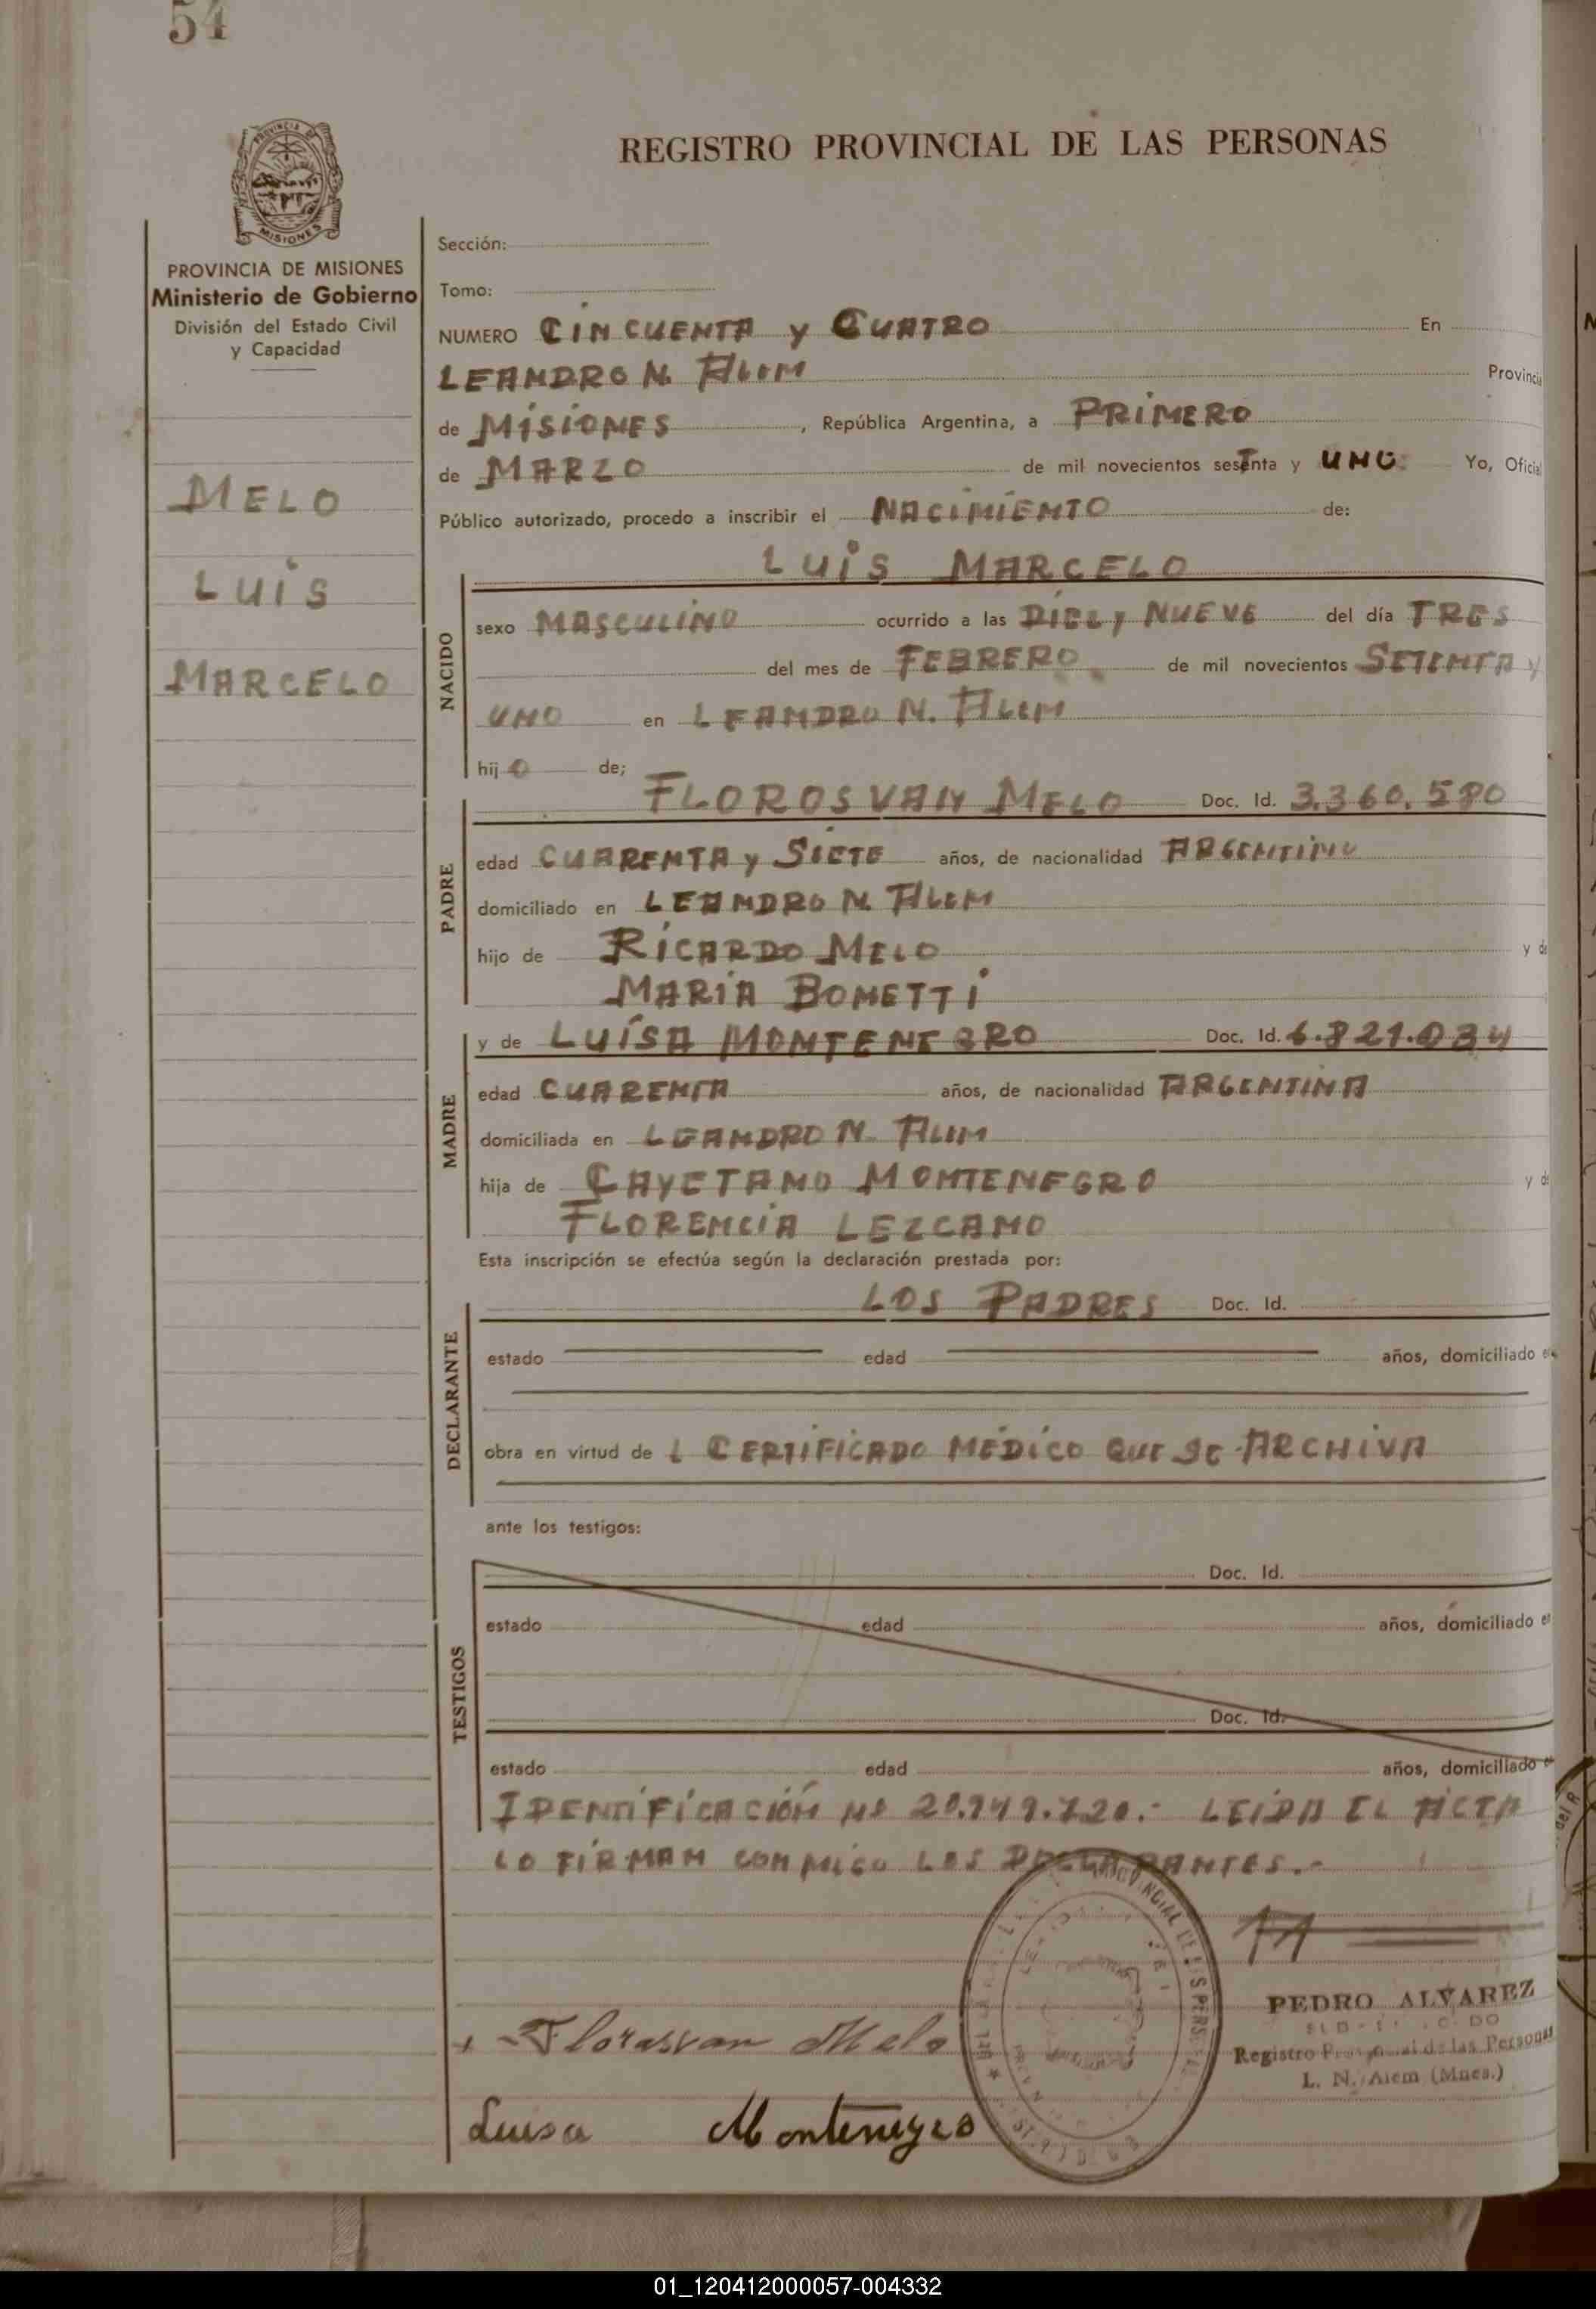 54
REGISTRO PROVINCIAL DE LAS PERSONAS
PROVINCIA DE
MISIONES
PROVINCIA DE MISIONES
Ministerio de Gobierno
División del Estado Civil
y Capacidad
MELO
LUIS
MARCELO
Sección:
Tomo:
NUMERO CINCUENTA y CUATRO En
LEANDRO N. ALEM Provincia
de MISIONES, República Argentina, a PRIMERO
de MARZO de mil novecientos sesTnta y UNO. Yo, Oficial
Público autorizado, procedo a inscribir el NACIMIENTO de:
LUIS MARCELO
NACIDO
sexo MASCULINO ocurrido a las DIEZ y NUEVE del día TRES
del mes de FEBRERO de mil novecientos SETENTA y
UNO en LEANDRO N. ALEM
hijo de;
FLOROSVAN MELO Doc. Id. 3.360.580
PADRE
edad CUARENTA y SIETE años, de nacionalidad ARGENTINO
domiciliado en LEANDRO N. ALEM
hijo de RICARDO MELO y de
MARIA BONETTI
y de LUÍSA MONTENEGRO Doc. Id. 6.821.034
MADRE
edad CUARENTA años, de nacionalidad ARGENTINA
domiciliada en LEANDRO N. ALEM
hija de CAYETANO MONTENEGRO y de
FLORENCIA LEZCANO
Esta inscripción se efectúa según la declaración prestada por:
LOS PADRES Doc. Id.
DECLARANTE
estado edad años, domiciliado en
obra en virtud de L CERTIFICADO MÉDICO QUE SE ARCHIVA
ante los testigos:
Doc. Id.
TESTIGOS
estado edad años, domiciliado en
Doc. Id.
estado edad años, domiciliado en
IDENTIFICACIÓN Nº LEIDA EL ACTA
LO FIRMAN CONMIGO LOS DECLARANTES.-
PROVINCIAL DE LAS PERSONAS
PEDRO ALVAREZ
Registro Provincial de las Personas
L. N. Alem (Mnes.)
Florosvan Melo
Luisa Montenegro
01_120412000057-004332